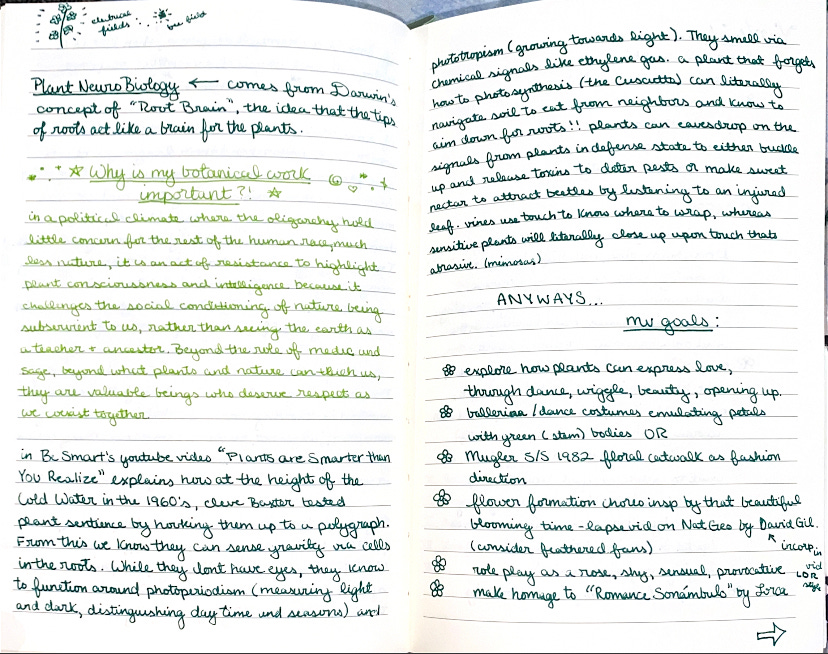 electrical
fields
bee field
Plant NeuroBiology ← comes from Darwin's
concept of "Root Brain", the idea that the tips
of roots act like a brain for the plants.
Why is my botanical work
important?!
in a political climate where the oligarchy hold
little concern for the rest of the human race, much
less nature, it is an act of resistance to highlight
plant consciousness and intelligence because it
challenges the social conditioning of nature being
subservient to us, rather than seeing the earth as
a teacher + ancestor. Beyond the role of medic and
sage, beyond what plants and nature can teach us,
they are valuable beings who deserve respect as
we coexist together.
in Be Smart's youtube video "Plants are Smarter than
You Realize" explains how at the height of the
Cold Water in the 1960's, Cleve Baxter tested
plant sentience by hooking them up to a polygraph.
From this we know they can sense gravity via cells
in the roots. While they dont have eyes, they know
to function around photoperiodism (measuring light
and dark, distinguishing day time and seasons) and
phototropism (growing towards light). They smell via
chemical signals like ethylene gas. a plant that forgets
how to photosynthesis (the Cuscutta) can literally
navigate soil to eat from neighbors and know to
aim down for roots!! plants can eavesdrop on the
signals from plants in defense state to either buckle
up and release toxins to deter pests or make sweet
nectar to attract beetles by listening to an injured
leaf. vines use touch to know where to wrap, whereas
sensitive plants will literally close up upon touch thats
abrasive. (mimosas)
ANYWAYS...
my goals:
explore how plants can express love,
through dance, wiggle, beauty, opening up.
ballerina / dance costumes emulating petals
with green (stem) bodies OR
Mugler S/S 1982 floral catwalk as fashion
direction
flower formation choreo insp by that beautiful
blooming time-lapse vid on Nat Geo by David Gil.
(consider feathered fans)
incorp in
vid
OR
role play as a rose, shy, sensual, provocative
make homage to "Romance Sonámbulo" by Lorca